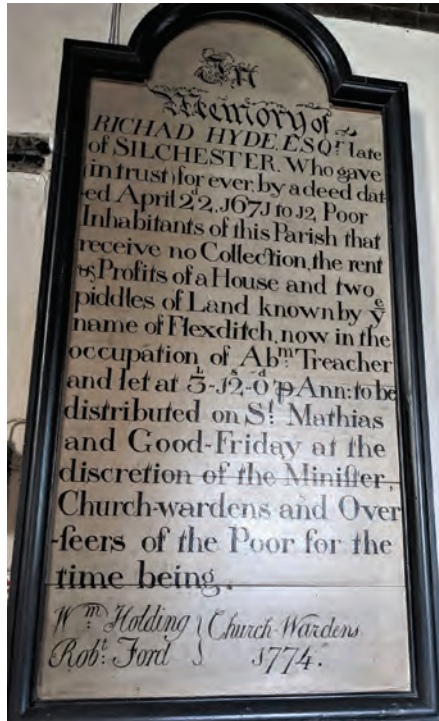 In
Memory of
RICHAD HYDE, ESQr. late
of SILCHESTER. Who gave
(in trust) for ever, by a deed dat-
-ed April 22d, J67J to J2, Poor
Inhabitants of this Parish that
receive no Collection, the rent
& Profits of a House and two
piddles of Land known by ye
name of Flexditch, now in the
occupation of Abm: Treacher
and let at 3L-J2s-0d p Ann: to be
distributed on St. Mathias
and Good-Friday at the
discretion of the Miniſter,
Church-wardens and Over
-ſeers of the Poor for the
time being.
Wm: Holding } Church-Wardens
Robt: Ford } J774.